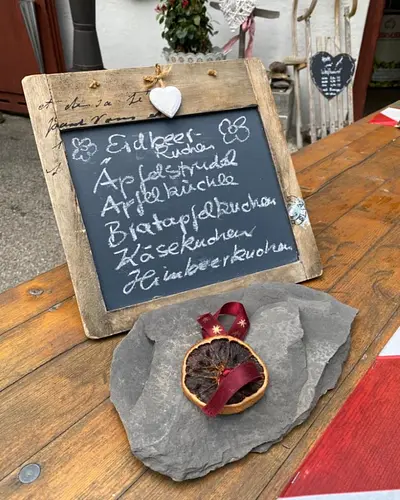 et
Erdbeer-
kuchen
Äpfelstrudel
Apfelküchle
Bratapfelkuchen
Käsekuchen
Himbeerkuchen